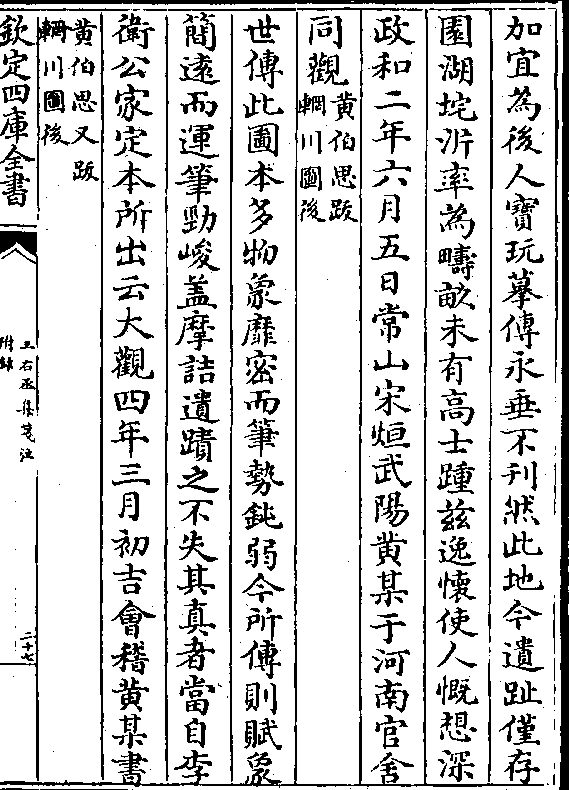 加宜為後人寶玩摹傳永垂不刋然此地今遺趾僅存
園湖垞沜率為疇畝未有高士踵兹逸懐使人慨想深
政和二年六月五日常山宋烜武陽黄某于河南官舍
同觀黄伯思跋
輞川圖後
世傳此圖本多物象靡密而筆勢鈍弱今所傳則賦象
簡逺而運筆勁峻盖摩詰遺蹟之不失其真者當自李
衛公家定本所出云大觀四年三月初吉會稽黄某書
黄伯思又跋
輞川圖後
欽定四庫全書
王右丞集箋注
附録
二十七